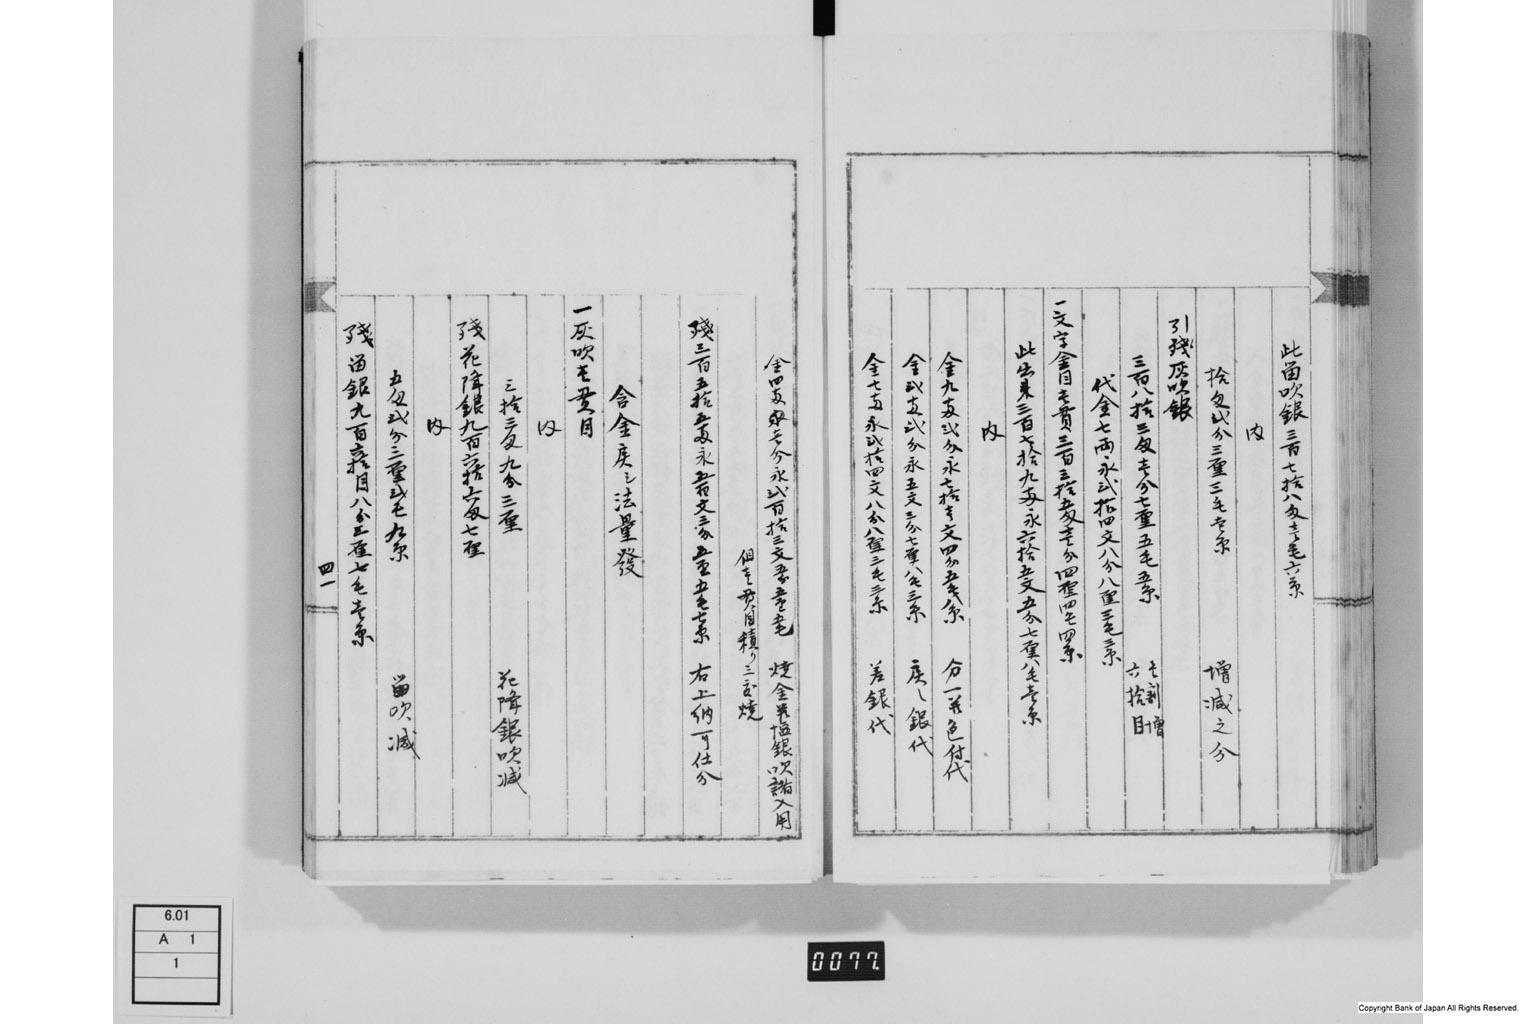 此留吹銀三百七拾八匁壱毛六糸
内
拾匁弐分三厘三毛壱糸 増減之分
引残灰吹銀
三百八拾三匁壱分七厘五毛五糸 壱割増
六拾目
代金七両永弐拾四文八分八厘三毛三糸
一文字金目壱貫三百三拾五匁壱分四厘四毛四糸
此出来三百七拾九両永六拾五文五分七厘八毛壱糸
内
金九両弐分永七拾壱文四分五毛八糸 分一并色付代
金弐両弐分永五文三分七厘八毛三糸 戻し銀代
金七両永弐拾四文八分八厘三毛三糸 差銀代
金四両永壱分永弐百拾三文 焼金并塩銀吹諸入用
但壱貫目積り三度焼
残三百五拾五両永五百文三分五厘五毛七糸 右上納可仕分
含金戻シ法量發
一灰吹壱貫目
内
三拾三匁九分三厘 花降銀吹減
残花降銀九百六拾六匁七厘
内
五匁弐分三厘弐毛九糸 留吹減
残留銀九百六拾目八分三厘七毛壱糸
四一
6.01
A 1
1
0077.
Copyright Bank of Japan All Rights Reserved.